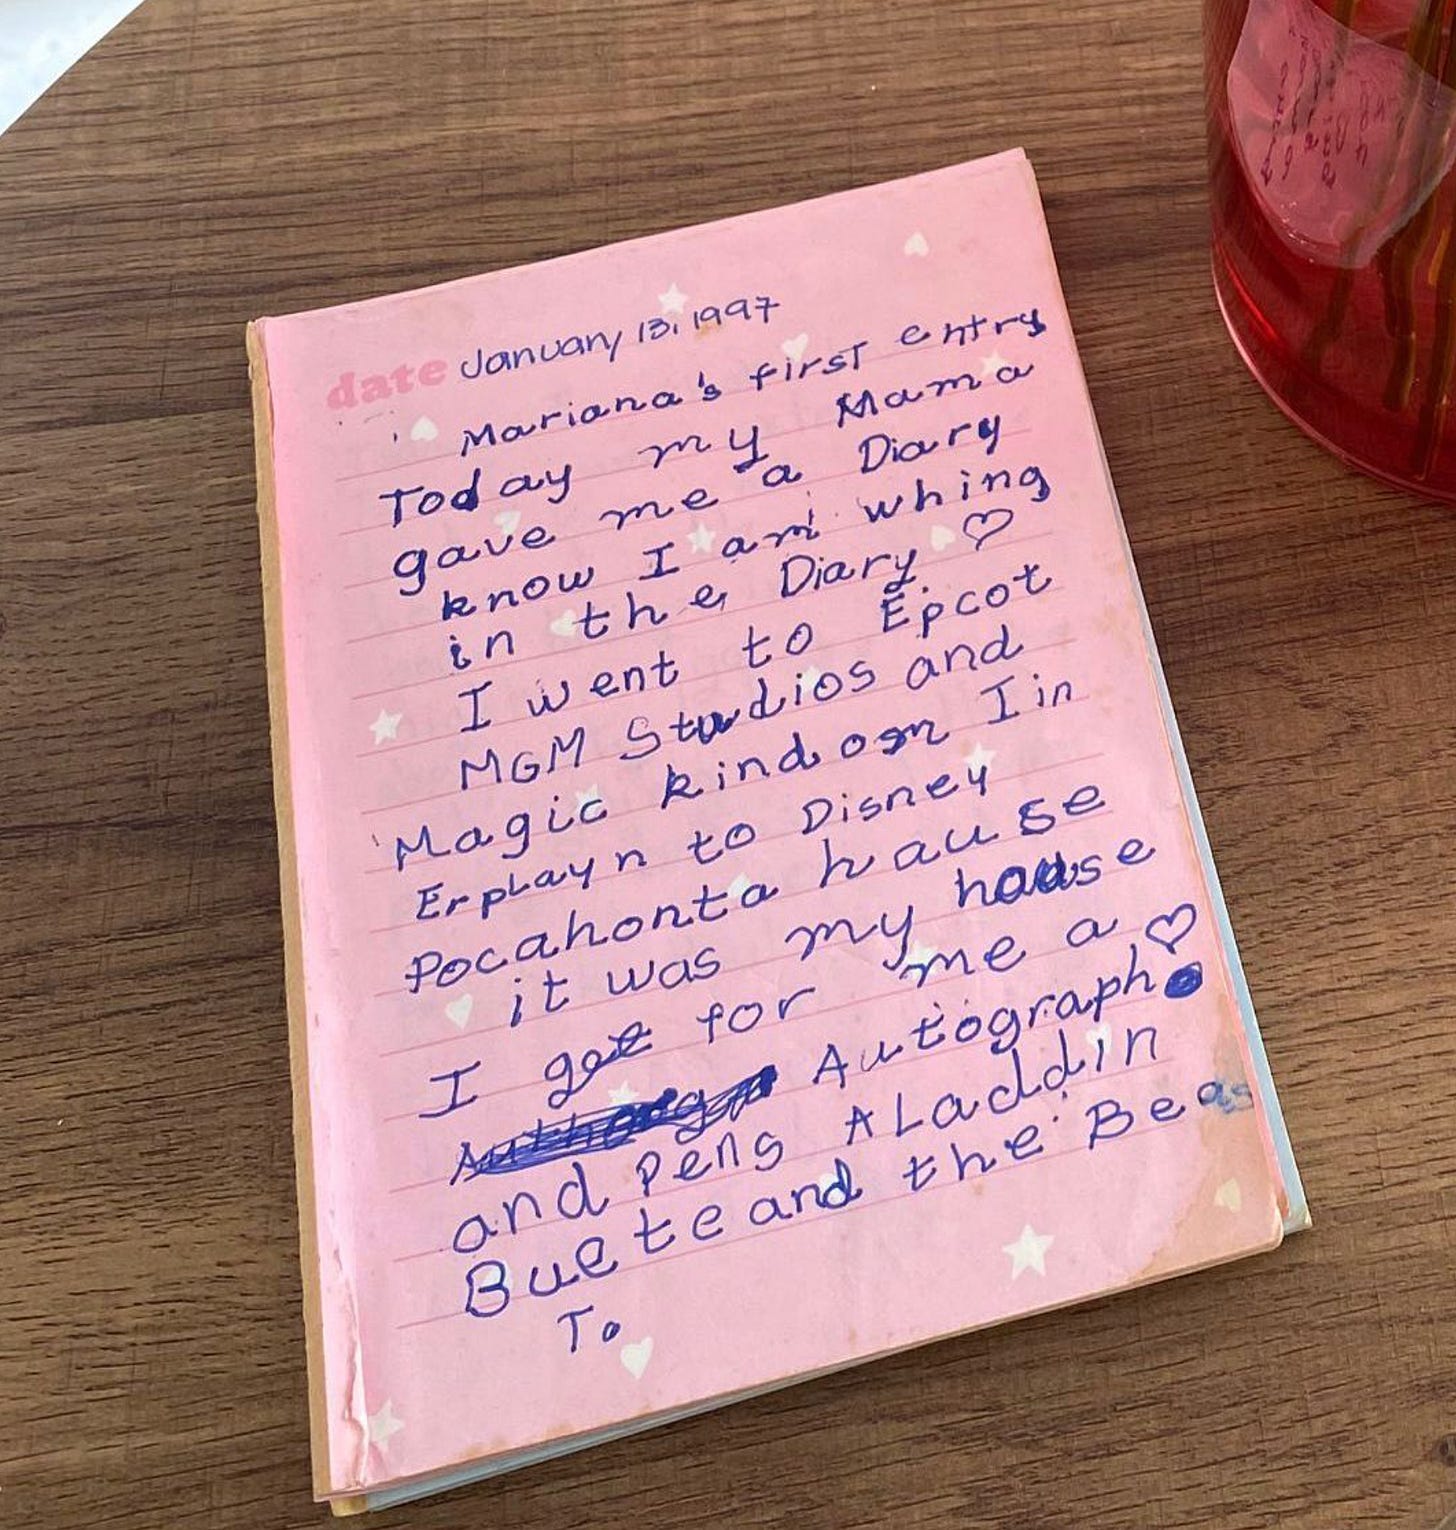 date January 13, 1997
Mariana's first entry
Today my Mama
gave me a Diary
know I am whing
in the Diary ♡
I went to Epcot
MGM Studios and
Magic kindom I in
Erplayn to Disney
Pocahonta hause
it was my house
I get for me a ♡
Autograph
and Pens ALaddin
Buete and the Beas
To